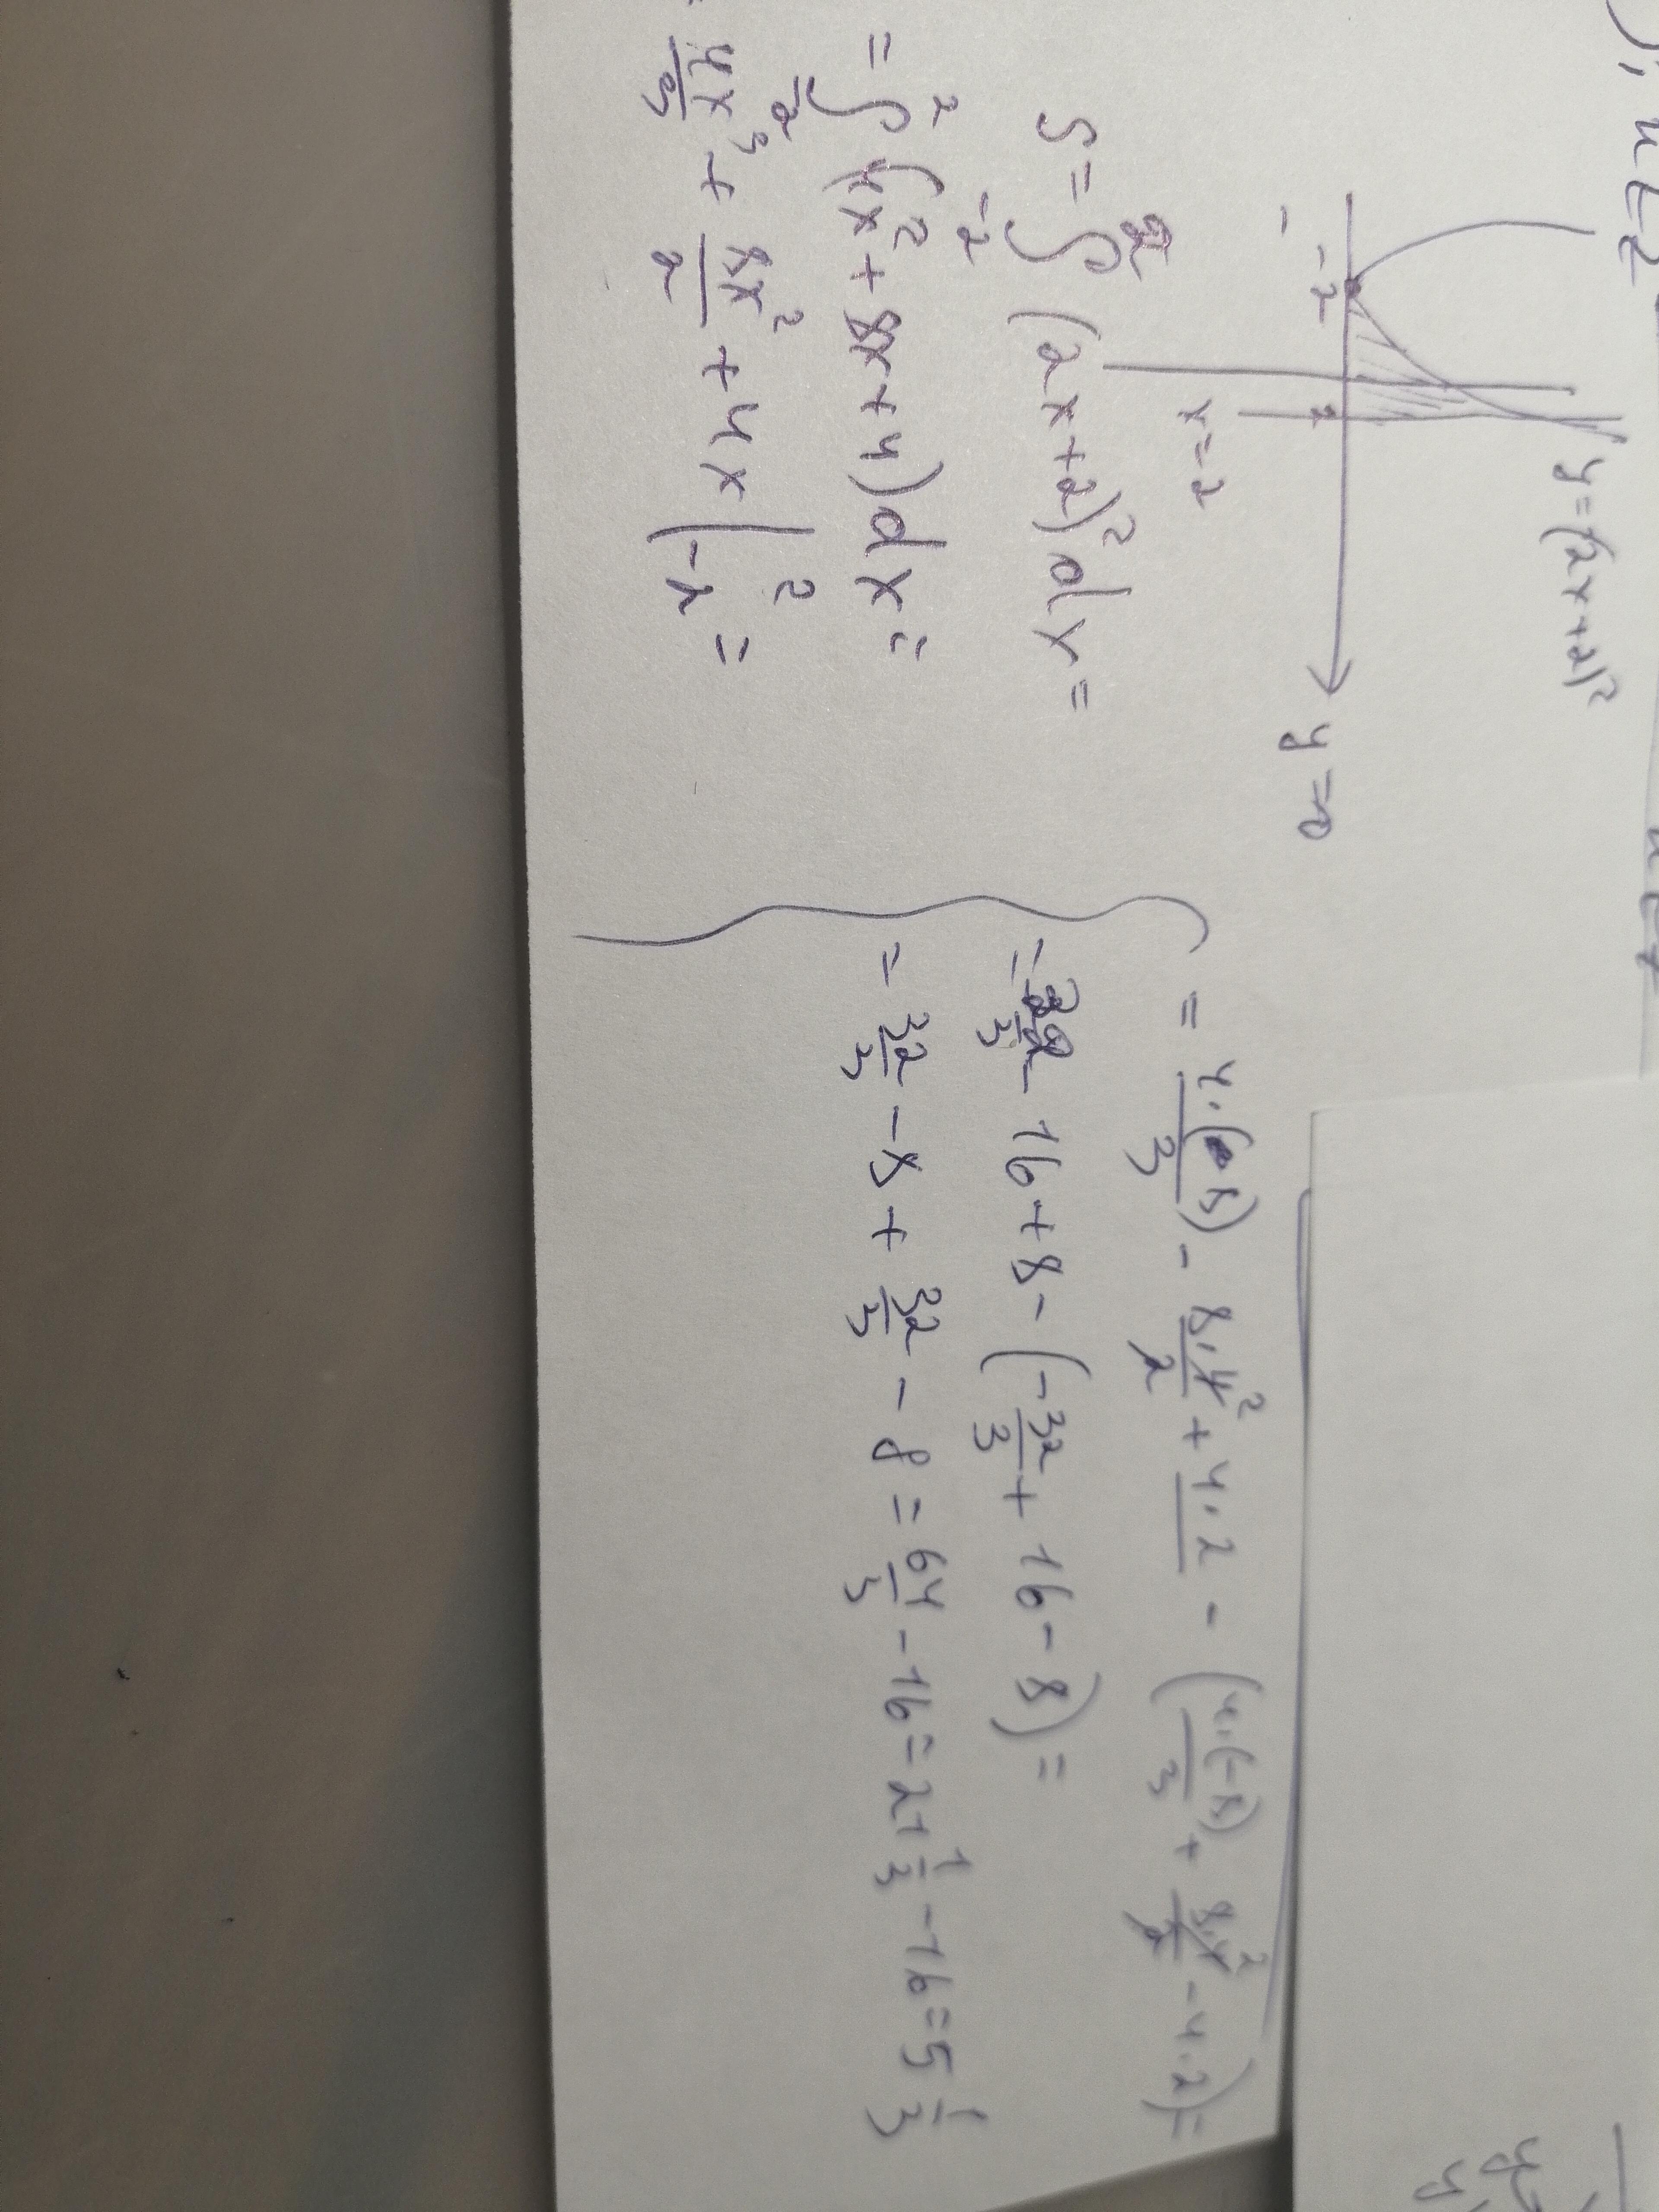 y=(2x+2)²
-2 2 y=0
x=2
S = ∫₋₂² (2x+2)²dx =
= ∫₋₂² (4x²+8x+4)dx =
4x³/3 + 8x²/2 + 4x |₋₂² =
= 4·(8)/3 - 8·4²/2 + 4·2 - (4·(-8)/3 + 8·4²/2 - 4·2) =
= 32/3 - 16+8 - (-32/3 + 16-8) =
= 32/3 - 8 + 32/3 - 8 = 64/3 - 16 = 21 1/3 - 16 = 5 1/3